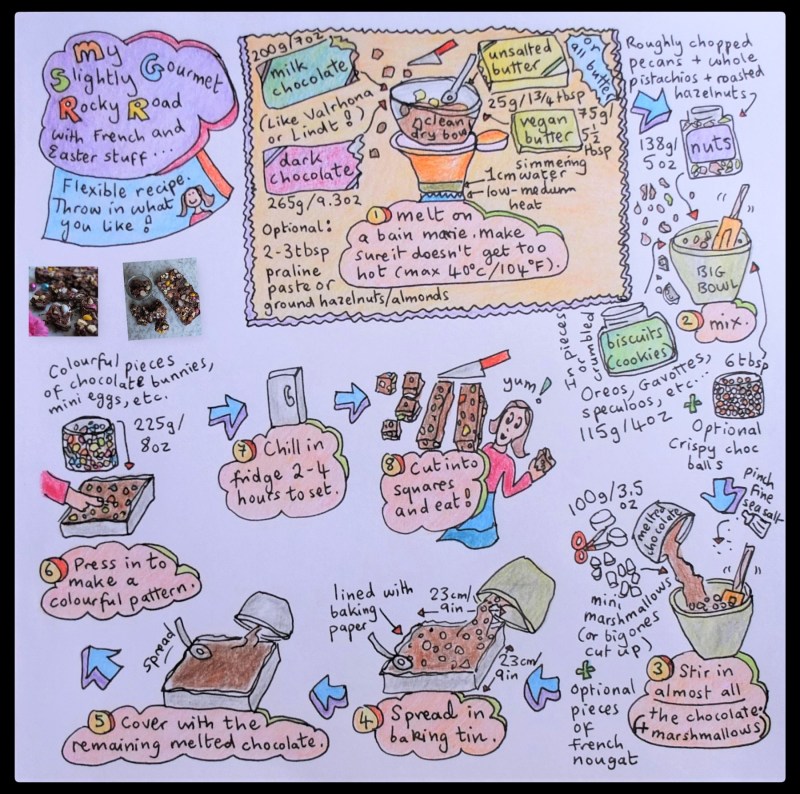 My
Slightly Gourmet
Rocky Road
with French and
Easter stuff...
Flexible recipe.
Throw in what
you like!
200g/7oz
milk
chocolate
(Like Valrhona
or Lindt!)
dark
chocolate
265g/9.3oz
Optional:
2-3tbsp
praline
paste or
ground hazelnuts/almonds
clean
dry bowl
unsalted
butter
or
all butter
25g/1 3/4 tbsp
vegan
butter
75g/
5 1/2
tbsp
simmering
1cm water
low-medium
heat
1 melt on
a bain marie. make
sure it doesn't get too
hot (max 40°c/104°F).
Roughly chopped
pecans + whole
pistachios + roasted
hazelnuts
138g/
5oz
nuts
BIG
BOWL
2 mix.
In pieces
or
crumbled
biscuits
(cookies)
Oreos, Gavottes,
speculoos, etc...
115g/4oz
6tbsp
+
Optional
Crispy choc
balls
pinch
fine
sea salt
100g/3.5
oz
melted
chocolate
mini
marshmallows
(or big ones
cut up)
+
Optional
pieces
of
French
nougat
3 Stir in
almost all
the chocolate
(+ marshmallows)
lined with
baking
paper
23cm/
9in
23cm/
9in
4 Spread in
baking tin.
spread
5 Cover with the
remaining melted chocolate.
Colourful pieces
of chocolate bunnies,
mini eggs, etc.
225g/
8oz
6 Press in to
make a
colourful pattern.
7 Chill in
fridge 2-4
hours to set.
yum!
8 Cut into
squares
and eat!